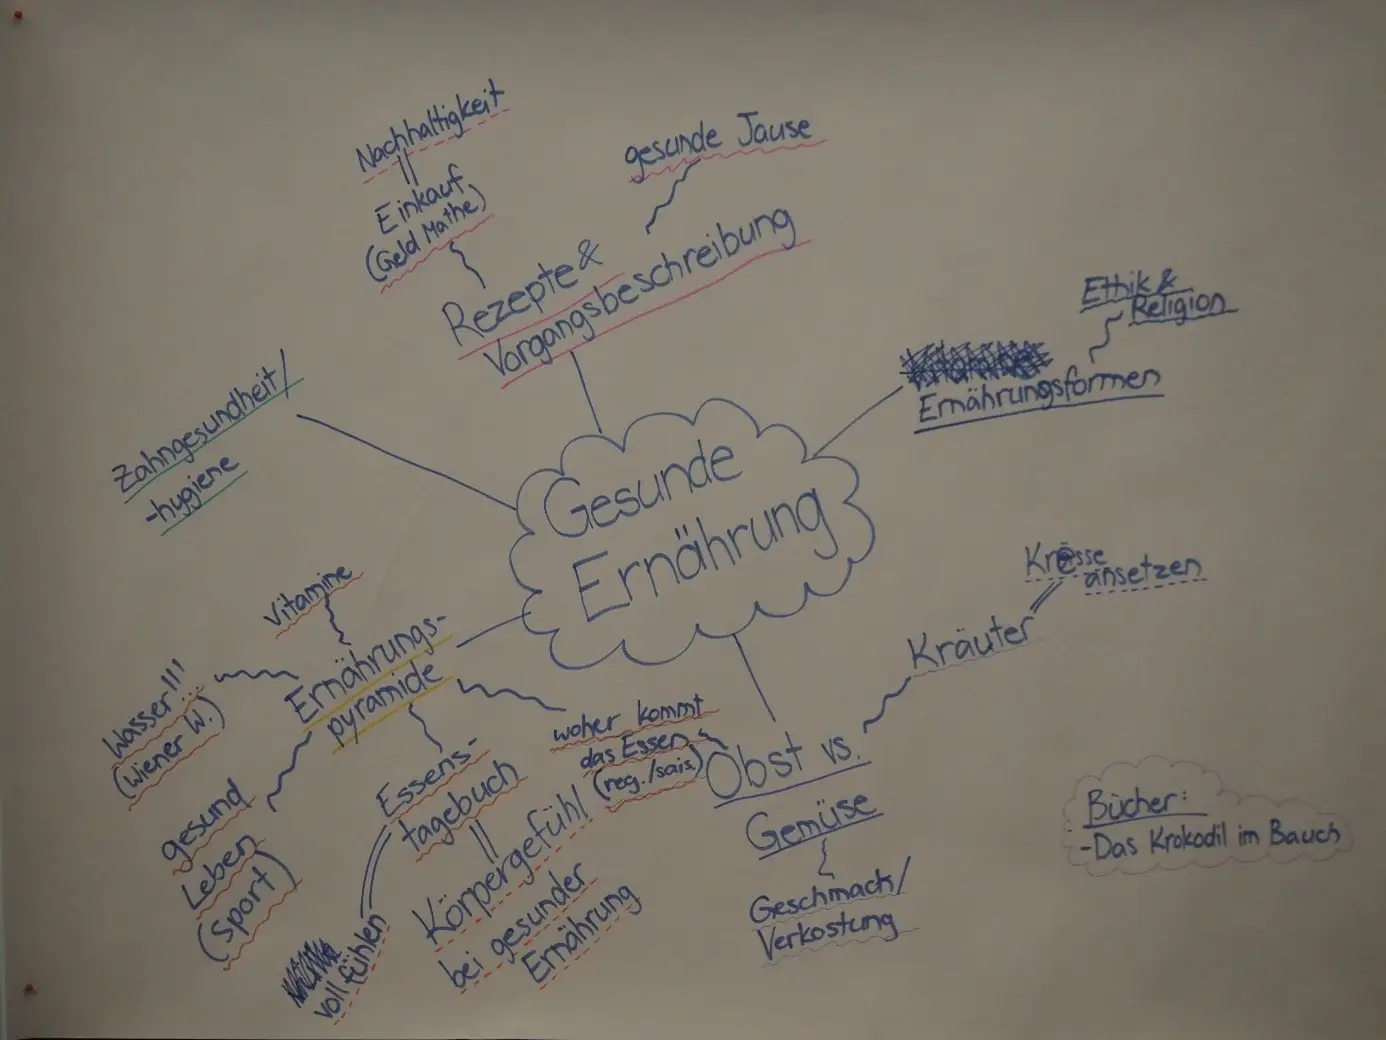 Nachhaltigkeit
Einkauf
(Geld Mathe)
gesunde Jause
Rezepte &
Vorgangsbeschreibung
Ethik &
Religion
Ernährungsformen
Zahngesundheit/
-hygiene
Gesunde
Ernährung
Kresse
ansetzen
Kräuter
Vitamine
Ernährungs-
pyramide
Wasser!!!
(Wiener W.)
gesund
Leben
(Sport)
Essens-
tagebuch
voll fühlen
Körpergefühl
bei gesunder
Ernährung
woher kommt
das Essen
(reg./sais.)
Obst vs.
Gemüse
Geschmack/
Verkostung
Bücher:
-Das Krokodil im Bauch